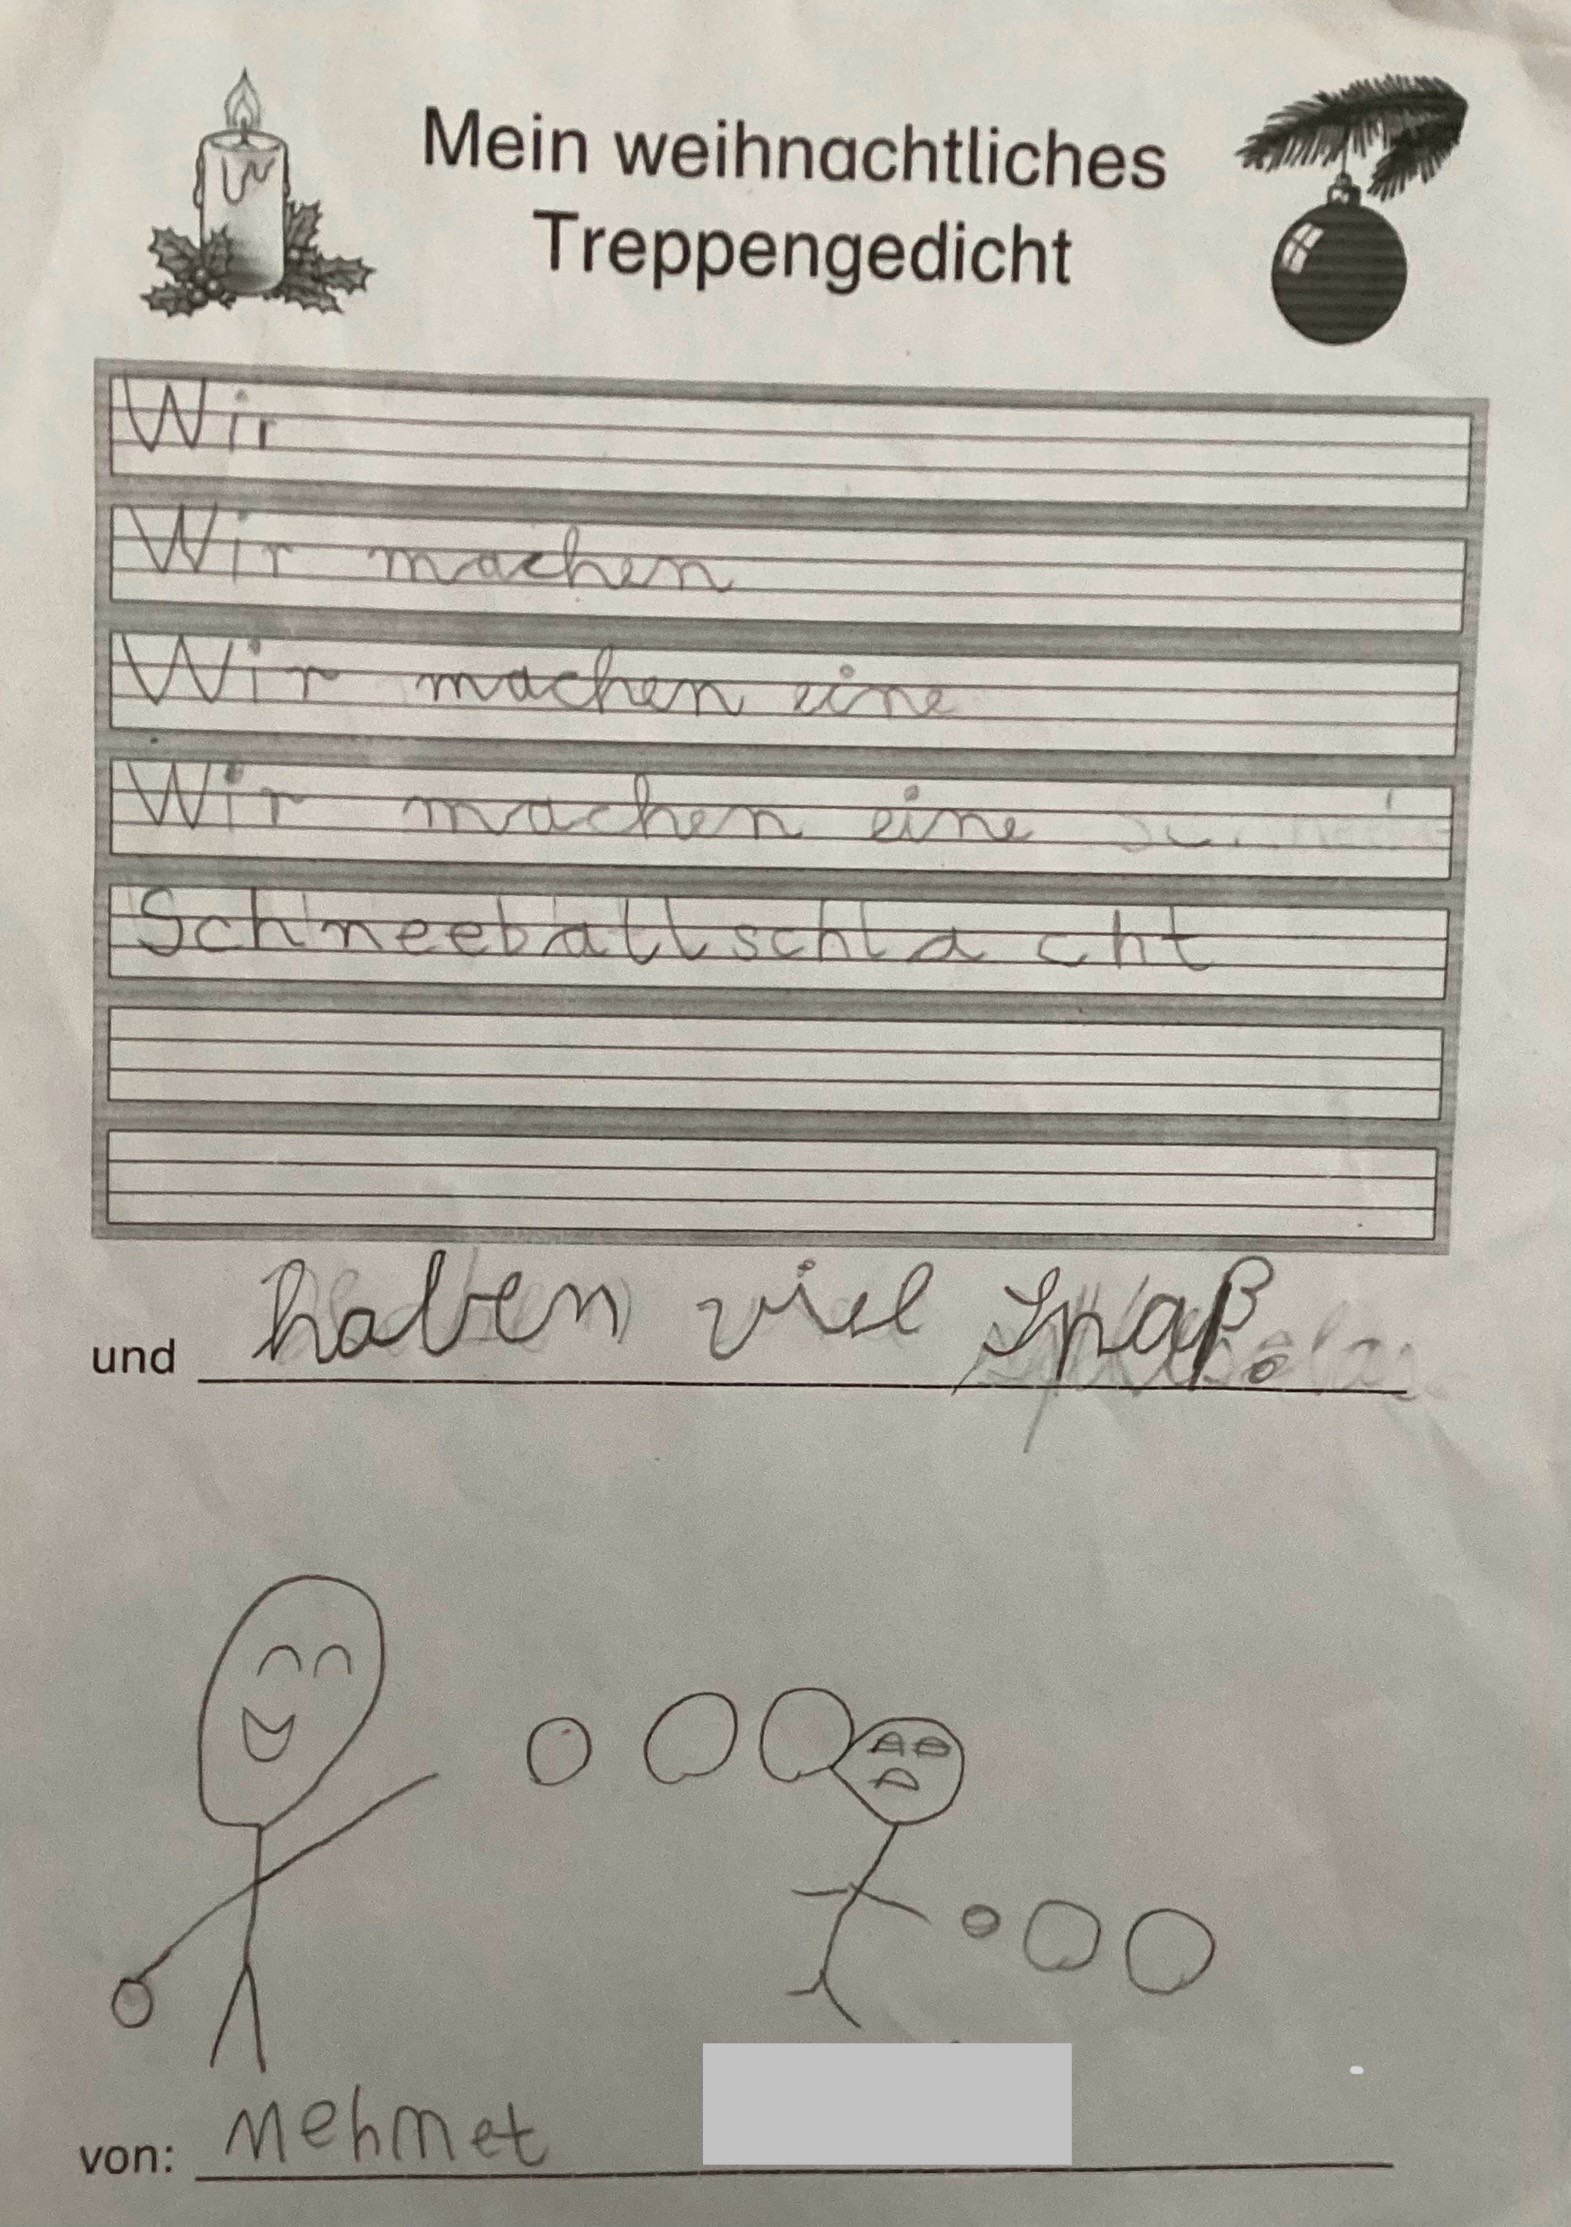 Mein weihnachtliches
Treppengedicht
Wir
Wir machen
Wir machen eine
Wir machen eine
Schneeballschlacht
und haben viel Spaß.
von: Mehmet